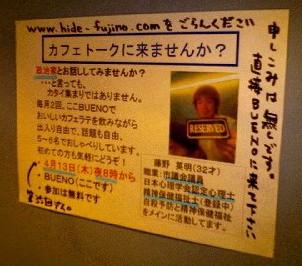 www.hide-fujino.comをごらんください
カフェトークに来ませんか？
政治家とお話ししてみませんか？
…と言っても、
カタイ集まりではありません。
毎月2回、ここBUENOで
おいしいカフェラテを飲みながら
出入り自由で、話題も自由、
5～6名でおしゃべりしています。
初めての方も気軽にどうぞ！
4月13日(木)夜8時から
BUENO(ここです)
・参加は無料です
RESERVED
藤野 英明(32才)
職業:市議会議員
日本心理学会認定心理士
精神保健福祉士(登録中)
自殺予防と精神保健福祉
をメインに活動してます。
申しこみは無しです。
直接BUENOに来て下さい